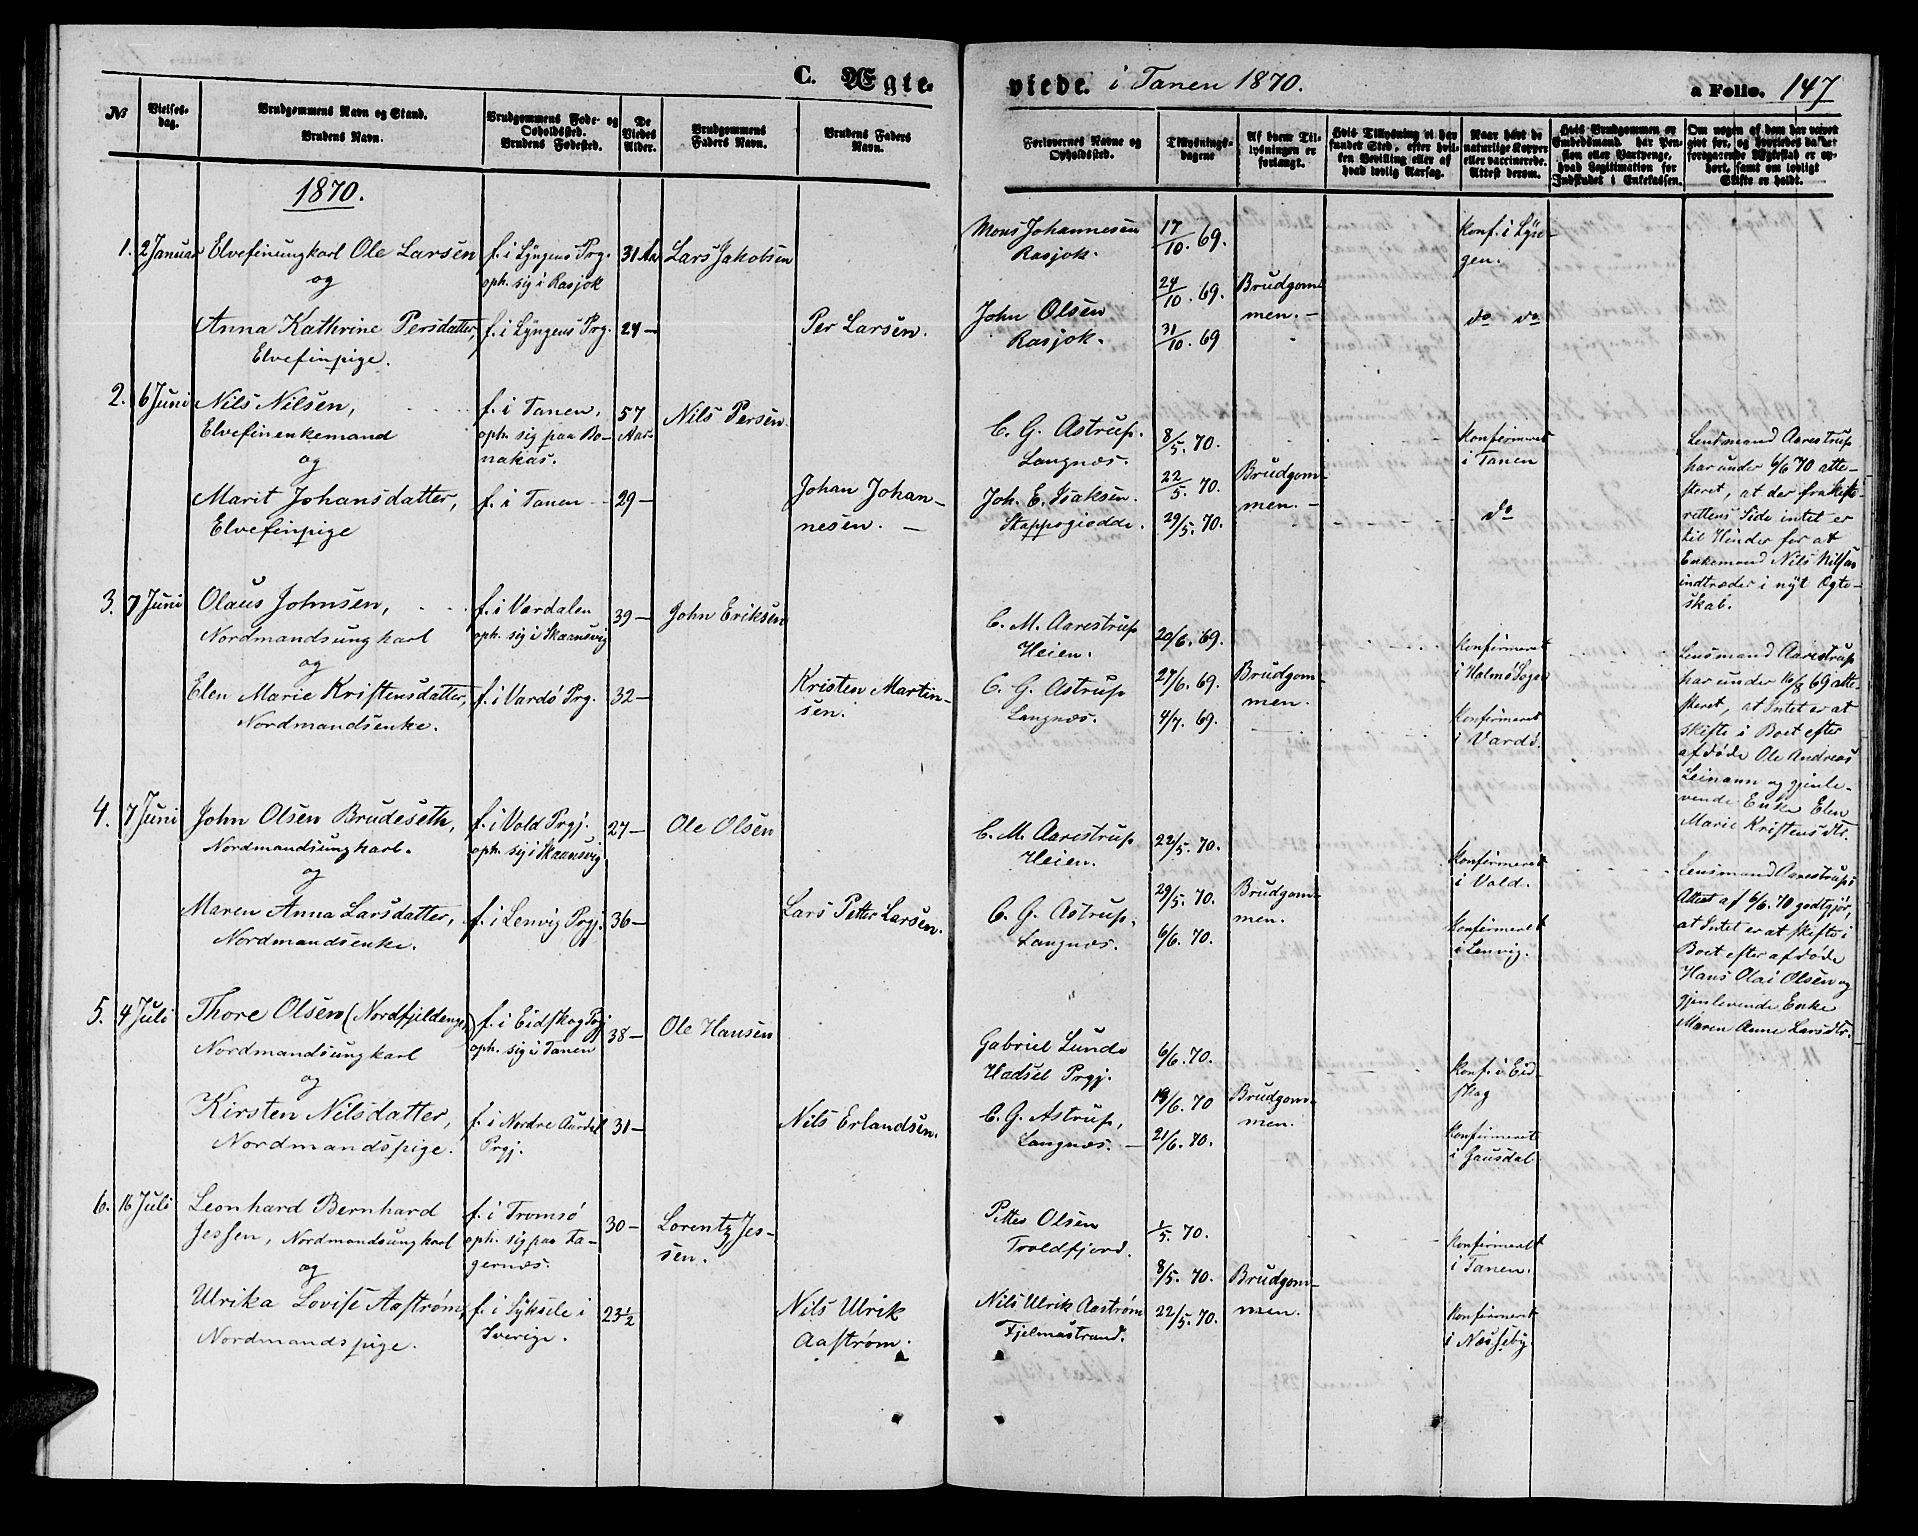 C. Ægte-
viede. i Tanen 1870.
a Folio. 147
No
Vielses-
dag.
Brudgommens Navn og Stand.
Brudens Navn.
Brudgommens Føde- og
Opholdssted.
Brudens Fødested.
De
Viedes
Alder.
Brudgommens
Faders Navn.
Brudens Faders
Navn.
Forlovernes Navne og
Opholdssted.
Tillysnings-
dagene
Af hvem Til-
lysningen er
forlangt.
Hvis Tillysning ei har
fundet Sted, efter hvil-
ken Bevilling eller af
hvad lovlig Aarsag.
Naar havt de
naturlige Kopper
eller vaccinerede.
Attest derom.
Hvis Brudgommen er
Embedsmand har Pen-
sion eller Vartpenge,
hvad Legitimation for
Indskudet i Enkekassen.
Om nogen af dem har været
gift før, og hvorledes da det
foregaaende Ægteskab er op-
hørt, samt om lovligt
Skifte er holdt.
1870.
1. 2 Januar Elvefinungkarl Ole Larsen
og
Anna Kathrine Persdatter,
Elvefinpige.
f. i Lyngens Prg.
oph. sig i Rasjok
f. i Lyngens Prg.
31 Aar
24 —
Lars Jakobsen
Per Larsen.
Mons Johannesen
Rasjok.
John Olsen
Rasjok.
17/10. 69.
24/10. 69.
31/10. 69
Brudgom-
men. —
Konf. i Lyn-
gen.
do do
2. 6 Juni Nils Nilsen,
Elvefinenkemand
og
Marit Johansdatter,
Elvefinpige
f. i Tanen,
oph. sig paa Bo-
nakas.
f. i Tanen
57
Aar
29 —
Nils Persen
Johan Johan-
nesen. —
C. G. Astrup.
Langnæs.
Joh. E. Isaksen.
Skappogiedde.
8/5. 70.
22/5. 70.
29/5. 70.
Brudgom-
men. —
Konfirmeret
i Tanen
do
Lensmand Aarestrup
har under 6/6 70 atte-
steret, at der fra Skifte-
rettens Side intet er
til Hinder for at
Enkemand Nils Nilsen
indtræder i nyt Ægte-
skab.
3. 7 Juni Olaus Johnsen,
Nordmandsungkarl
og
Elen Marie Kristensdatter,
Nordmandsenke.
f. i Værdalen
oph. sig i Skaansvig
f. i Vardö Prg.
39 —
32 —
John Eriksen
Kristen Martin-
sen.
C. M. Aarestrup
Heien.
C. G. Astrup
Langnæs.
20/6. 69.
27/6. 69.
4/7. 69.
Brudgom-
men.
Konfirmeret
i Halmø Sogn
Konfirmeret
i Vardö.
Lensmand Aarestrup
har under 10/8 69 atte-
steret, at Intet er at
skifte i Boet efter
afdøde Ole Andreas
Leinann og gjenle-
vende Enke Elen
Marie Kristensdtr.
4. 7 Juni John Olsen Brudeseth,
Nordmandsungkarl.
og
Maren Anna Larsdatter,
Nordmandsenke.
f. i Vold Prgj.
oph. sig i Skaansvig
f. i Lenvig Prgj.
27 —
36 —
Ole Olsen
Lars Petter Larsen.
C. M. Aarestrup
Heien.
C. G. Astrup.
Langnæs.
22/5. 70.
29/5. 70.
6/6. 70.
Brudgom-
men.
Konfirmeret
i Vold.
Konfirmeret
i Lenvig.
Lensmand Aarestrups
Attest af 6/6. 70 godtgjør,
at Intet er at skifte i
Boet efter afdøde
Hans Olai Olsen og
gjenlevende Enke
Maren Anne Larsdtr.
5. 4 Juli Thore Olsen (Nordfjeldenge)
Nordmandsungkarl
og
Kirsten Nilsdatter,
Nordmandspige.
f. i Eidskog Prgj
oph. sig i Tanen
f. i Nordre Aurdal
Prgj.
38 —
31 —
Ole Hansen
Nils Erlandsen.
Gabriel Lunde
Hadsel Prgj.
C. G. Astrup,
Langnæs. —
6/6. 70.
19/6. 70
21/6. 70.
Brudgom-
men.
Konf. i Eid-
skog
Konfirmeret
i Gausdal
6. 16 Juli Leonhard Bernhard
Jessen, Nordmandsungkarl
og
Ulrika Lovise Aaström,
Nordmandspige.
f. i Tromsö
oph. sig paa La-
gernæs.
f. i Lyksele i
Sverige.
30 —
23 1/2
Lorentz Jes-
sen.
Nils Ulrik
Aaström.
Petter Olsen
Troldfjord.
Nils Ulrik Aaström
Fjelmastrand.
1/5. 70.
8/5. 70.
22/5. 70.
Brudgom-
men.
Konfirmeret
i Tanen.
Konfirmeret
i Næsseby